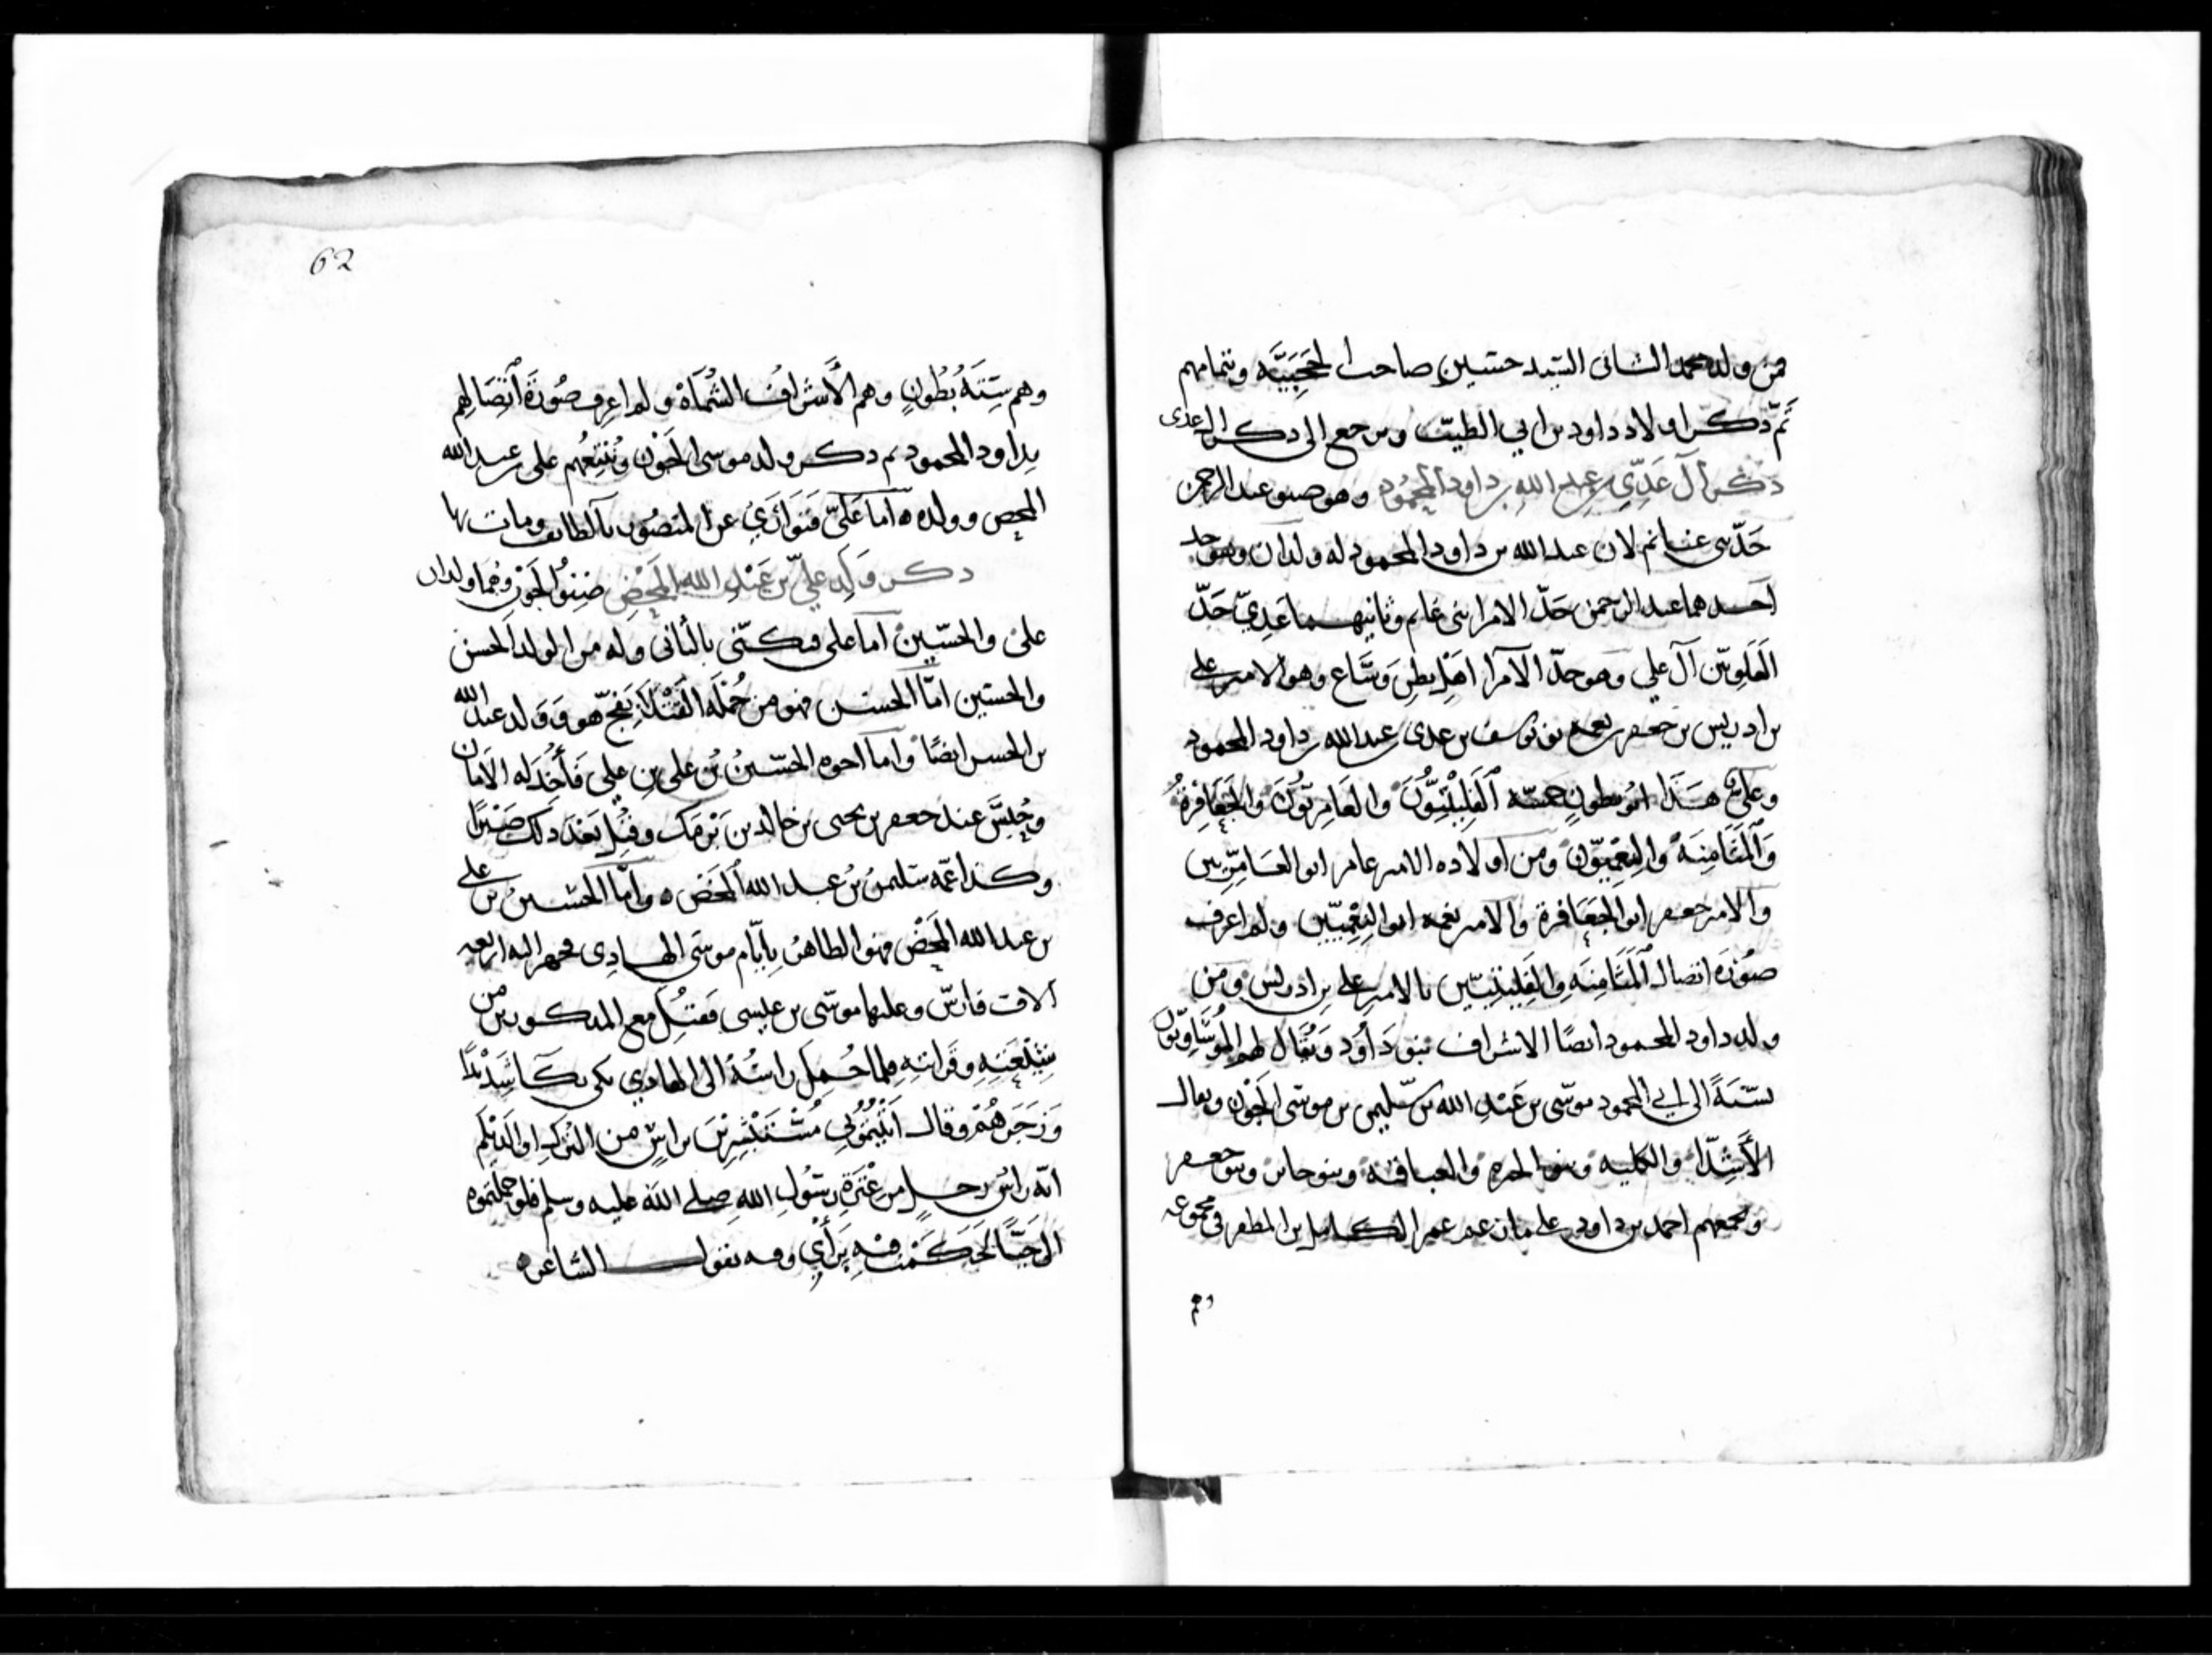 فمن ولد محمد الثانى السيد حسين صاحب الحجبيّه وبتمامهم
تمّ ذكر اولاد داود بن ابي الطيّب ونرجع الى ذكر ال عدى
ذكر آل عَدِيّ بن عبد الله بن داود المحمُود وهو صنو عبد الرحمن
جدّ بنى غانم لان عبد الله بن داود المحمود له ولدان
احدهما عبد الرحمن جدّ الامرا بنى غانم وثانيهما عَدِيّ جَدّ
العَلويّين آل علي وهو جدّ الامرآ اهل بطن وسَاع وهو الامير علي
بن ادريس بن جعفر بن نعمه بن يوسف بن عدى بن عبد الله بن داود المحمود
وعليّ هَذَا ابُو بطونٍ خمسَه والعَامِريّون والجَعَافِرةُ
وَالمَثَامِنَهُ والنِعْمِيّون ومن اولاده الامير عامر ابو العَامِرّيين
والامير جعفر ابو الجَعَافرة والامير نعمه ابو النِعْمِيّين ولم اعرف
صُورَة اتصال المَثَامِنَه بالامير علي بن ادريس ومن
ولد داود المحمود ايضًا الاشراف بنو دَاوُد وَيُقَال لهم
نسْبَةً الى ابي المحمود موسَى بن عَبْد الله بن سُليمن بن موسَى الجَوْن ويقال
الأَشِدّا والكليبه وبنو الحره وبنو حابس وبنو جعفر
ويجمعهم احمد بن داود علي ما ذكره عمر الكامل بن المظفر فى مجموعه
وهم
62
وهم سِتّةُ بُطُونٍ وهم الأَشرَافُ الشُمَاةْ ولم اعرف صُورَةَ اتّصَالِهم
بداود المحمود ثم ذكر ولد موسى الجَوْن وَنُتْبِعُهم على بن عبد الله
المحض وولده ٥ امَّا عَليّ فتوَارَي عن المنصُور بالطايف ومات بها
ذكر وَلَدِ عليّ بن عَبْدِ الله المَحْضِ صِنوِ الجَوْنِ وهما ولدان
علىٌ والحسَين امَا على فيكنّى بالثانى وله من الولد الحسن
والحسَين امّا الحسن فهو من جُملَة القَتْلَى بفَخّ هو وَوَلد عبد الله
بن الحسن ايضًا وامّا اخوه الحسَينُ بْن على بن علي فَأُخِذ له الامَان
وحُبِسَ عند جعفر بن يحيى بن خالد بن بَرْمَك وقُتِل بَعْدَ ذلك صَبْرًا
وكذا عمّه سَليمنُ بْن عبد الله المَحْض ٥ وامّا الحُسَينُ بن على
بن عبد الله المَحْض فهو الظاهرُ بايّام موسَى الهادِى فجهز اليه اربعه
آلاف فارسٍ وعليها موسَى بن عيسى فقُتِلَ مع المذكورين من
شِيْعَتِهِ وقَرابتِهِ فلما حُمِلَ راسُهُ الى الهادي بكى بكاً شَدِيْدًا
وَزَجَرَهُمْ وقال اتَيْتُمُوْنِي مُسْتَبْشِرِيْنَ براسٍ من التُركِ او الدَيْلَم
انّه رَاسُ رجلٍ من عِتْرَةِ رسُولِ الله صلي الله عليه وسلم فلو حملتموه
الي حَيًّا لحَكَمْتُ فيهِ برَأْيٍ وفيه يقول الشاعر ٥